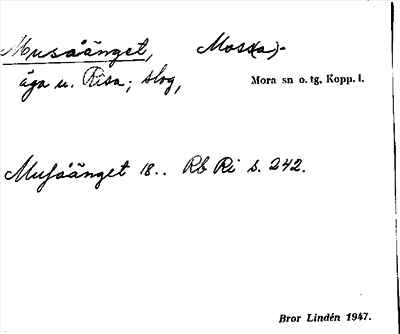 Musåänget, Moss(a)-
äga u. Risa; skog,
Mora sn o. tg, Kopp. l.
Musåänget 18.. Rb Ri s. 242.
Bror Lindén 1947.